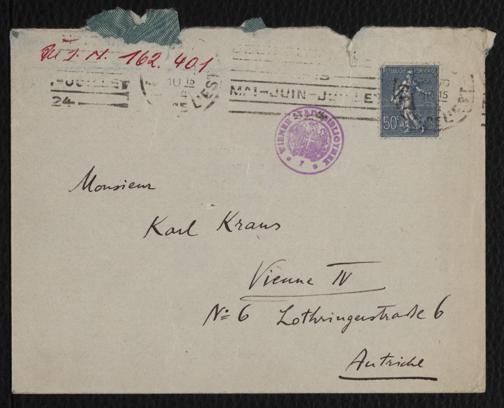 I. N. 162.401
MAI-JUIN-JUILLET
-JUILLET
24
10 15
L'EST
50
WIENER STADTBIBLIOTHEK
Monsieur
Karl Kraus
Vienne IV
No 6 Lothringerstraße 6
Autriche